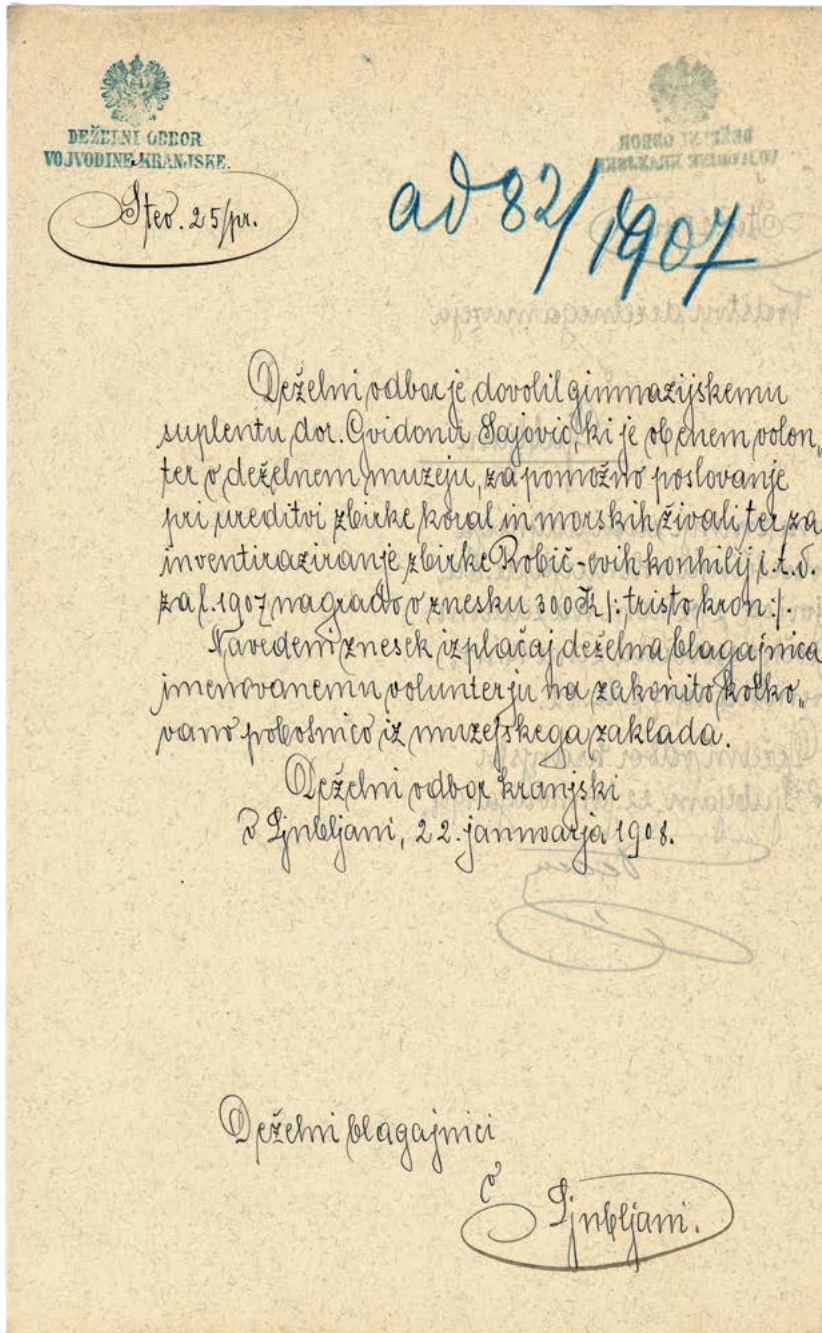 DEŽELNI ODBOR
VOJVODINE KRANJSKE.
Štev. 25/pr.
ad 82/1907
Deželni odbor je dovolil gimnazijskemu
suplentu dor. Gvidonu Sajovic, ki je obenem volon„
ter v deželnem muzeju, za pomožno poslovanje
pri ureditvi zbirke koral in morskih živali ter za
inventiraziranje zbirke Robič-evih konhilij i.t.d.
za l. 1907 nagrado v znesku 300 K /: tristo kron :/.
Navedeni znesek izplačaj deželna blagajnica
imenovanemu volunterju na zakonito kolko„
vano pobotnico iz muzejskega zaklada.
Deželni odbor kranjski
v Ljubljani, 22. januvarja 1908.
Deželni blagajnici
v
Ljubljani.